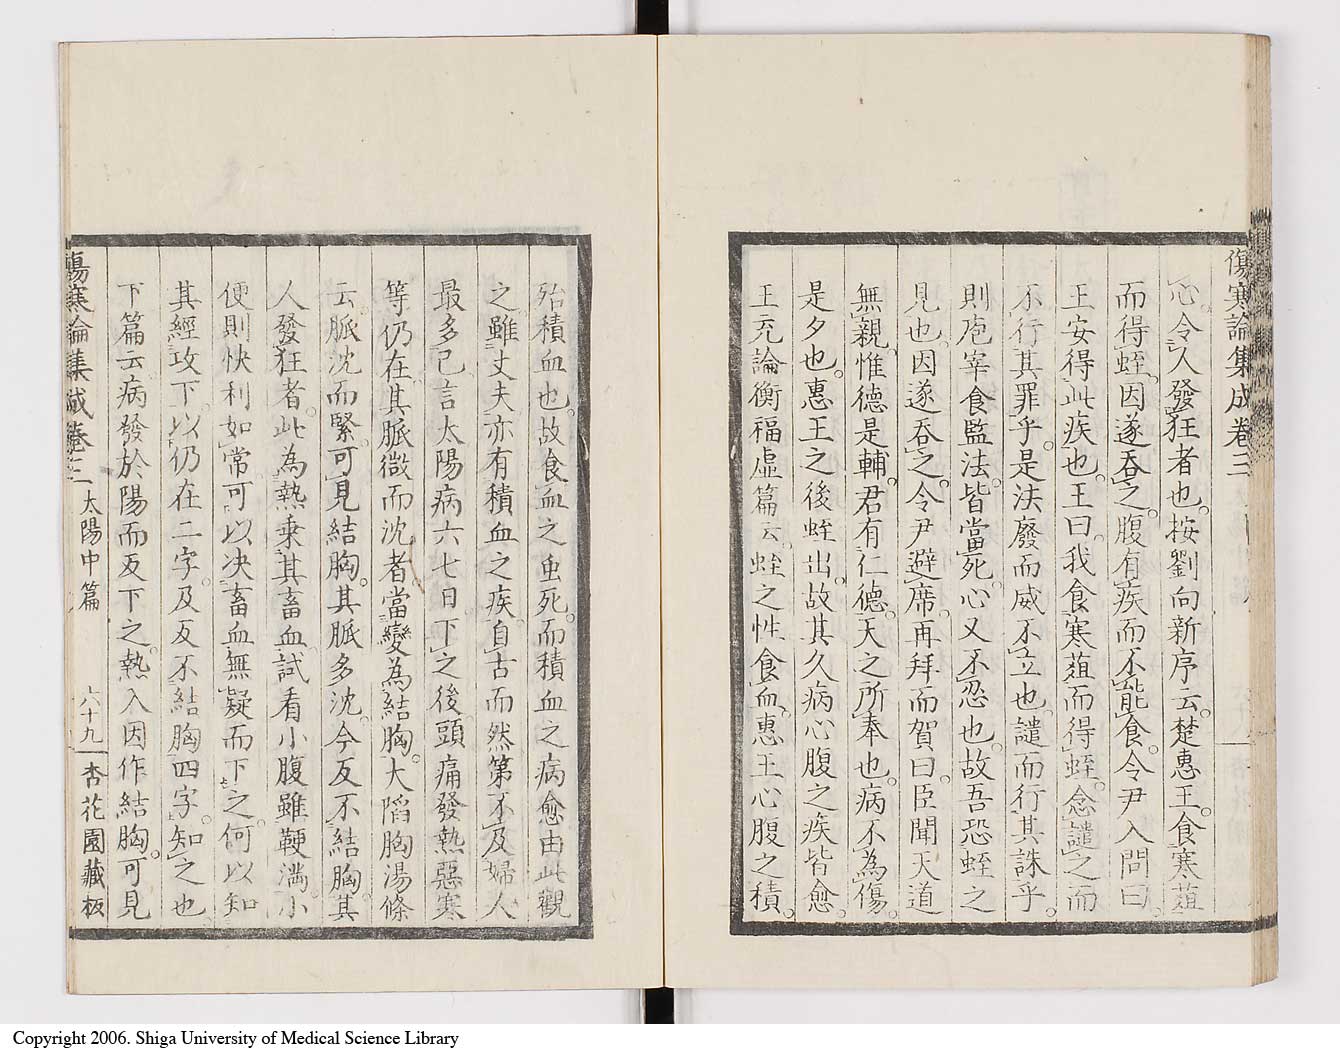 傷寒論集成卷三
心令人發狂者也按劉向新序云楚惠王食寒葅
而得蛭因遂吞之腹有疾而不能食令尹入問曰
王安得此疾也王曰我食寒葅而得蛭念譴之而
不行其罪乎是法廢而威不立也譴而行其誅乎
則庖宰食監法皆當死心又不忍也故吾恐蛭之
見也因遂吞之令尹避席再拜而賀曰臣聞天道
無親惟德是輔君有仁德天之所奉也病不為傷
是夕也惠王之後蛭出故其久病心腹之疾皆愈
王充論衡福虛篇云蛭之性食血惠王心腹之積
殆積血也故食血之虫死而積血之病愈由此觀
之雖丈夫亦有積血之疾自古而然第不及婦人
最多已言太陽病六七日下之後頭痛發熱惡寒
等仍在其脈微而沈者當變為結胸大陷胸湯條
云脈沈而緊可見結胸其脈多沈今反不結胸其
人發狂者此為熱乗其畜血試看小腹雖鞕満小
便則快利如常可以决畜血無疑而下之何以知
其經攻下以仍在二字及反不結胸四字知之也
下篇云病發於陽而反下之熱入因作結胸可見
傷寒論集成卷三 太陽中篇 六十九 杏花園藏板
Copyright 2006. Shiga University of Medical Science Library